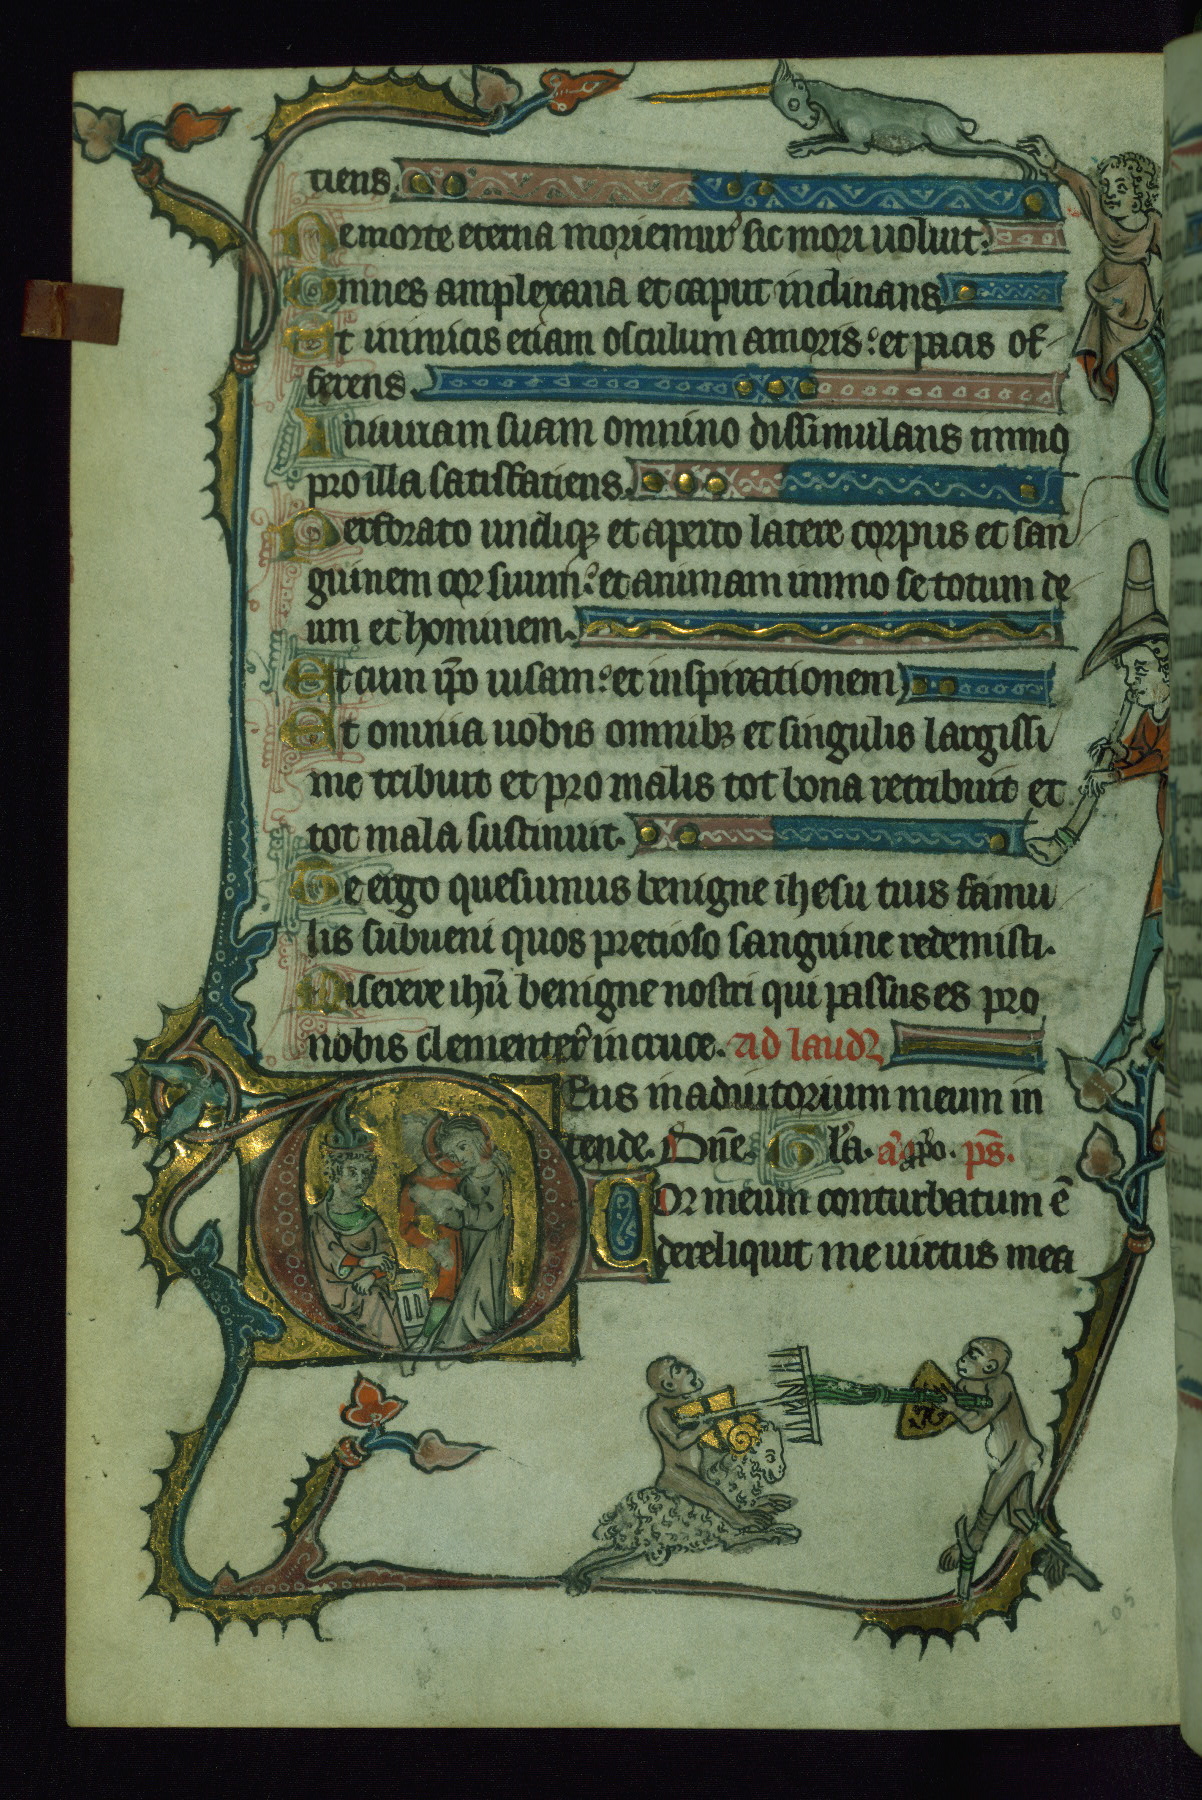 tiens.
Ne morte eterna moriemur sic mori uoluit.
Omnes amplexana et caput inclinans
Et inimicis etiam osculum amoris: et pacis of
ferens.
Iniuriam suam omnino dissimulans immo
pro illa satisfatiens.
Perforato undiqꝫ et aperto latere corpus et san
guinem cor suum: et animam immo se totum de
um et hominem.
Et cum ip̃o uisam: et inspirationem
Et omnia uobis omnibꝫ et singulis largissi
me tribuit et pro malis tot bona retribuit et
tot mala sustinuit.
Te ergo quesumus benigne ihesu tuis famu
lis subueni quos pretioso sanguine redemisti.
Miserere ihũ benigne nostri qui passus es pro
nobis clementer in cruce. ad laud
Deus in adiutorium meum in
tende. Dñe. Gl̃a. a. ps̃.
Cor meum conturbatum ẽ
dereliquit me uirtus mea
205